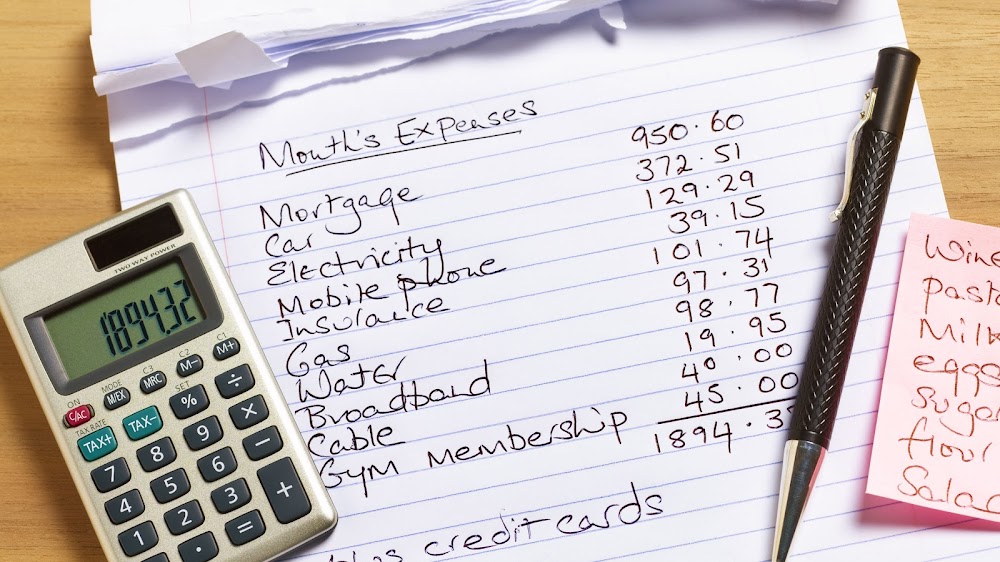 Month's Expenses
Mortgage 950.60
Car 372.51
Electricity 129.29
Mobile phone 39.15
Insurance 101.74
Gas 97.31
Water 98.77
Broadband 19.95
Cable 40.00
Gym membership 45.00
1894.3
credit cards
TWO WAY POWER
1894.32
ON MODE C3 C2 C1
C/AC M/EX MRC M− M+
TAX RATE SET
TAX+ TAX− % ÷
7 8 9 ×
4 5 6 −
1 2 3 +
. =
Wine
past
Milk
eggs